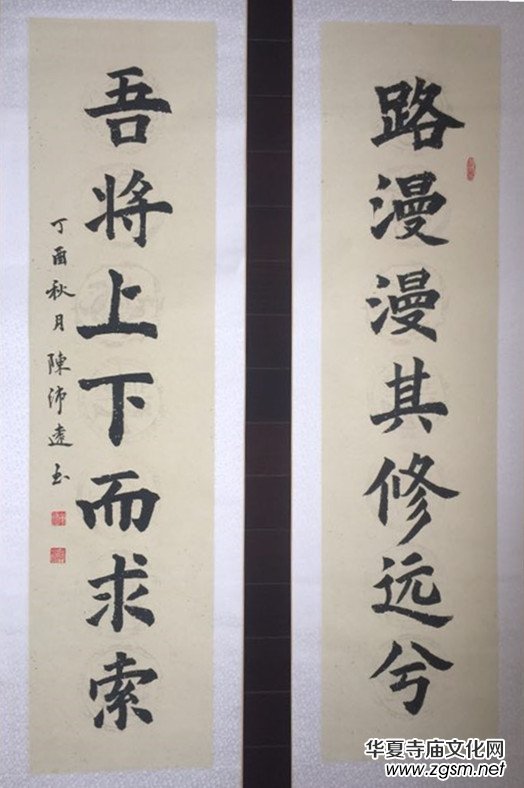 路漫漫其修远兮
吾将上下而求索
丁酉秋月陳沛遠书
华夏寺庙文化网
www.zgsm.net